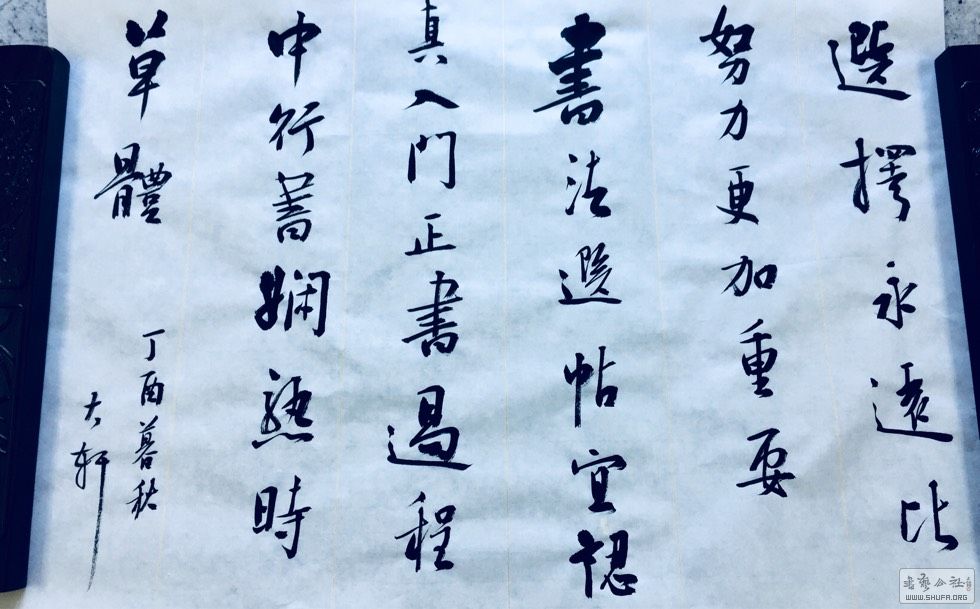 選擇永遠比
努力更加重要
書法選帖宜認
真入門正書過程
中行書嫻熟時
草體
丁酉暮秋
大軒
書藝公社
WWW.SHUFA.ORG